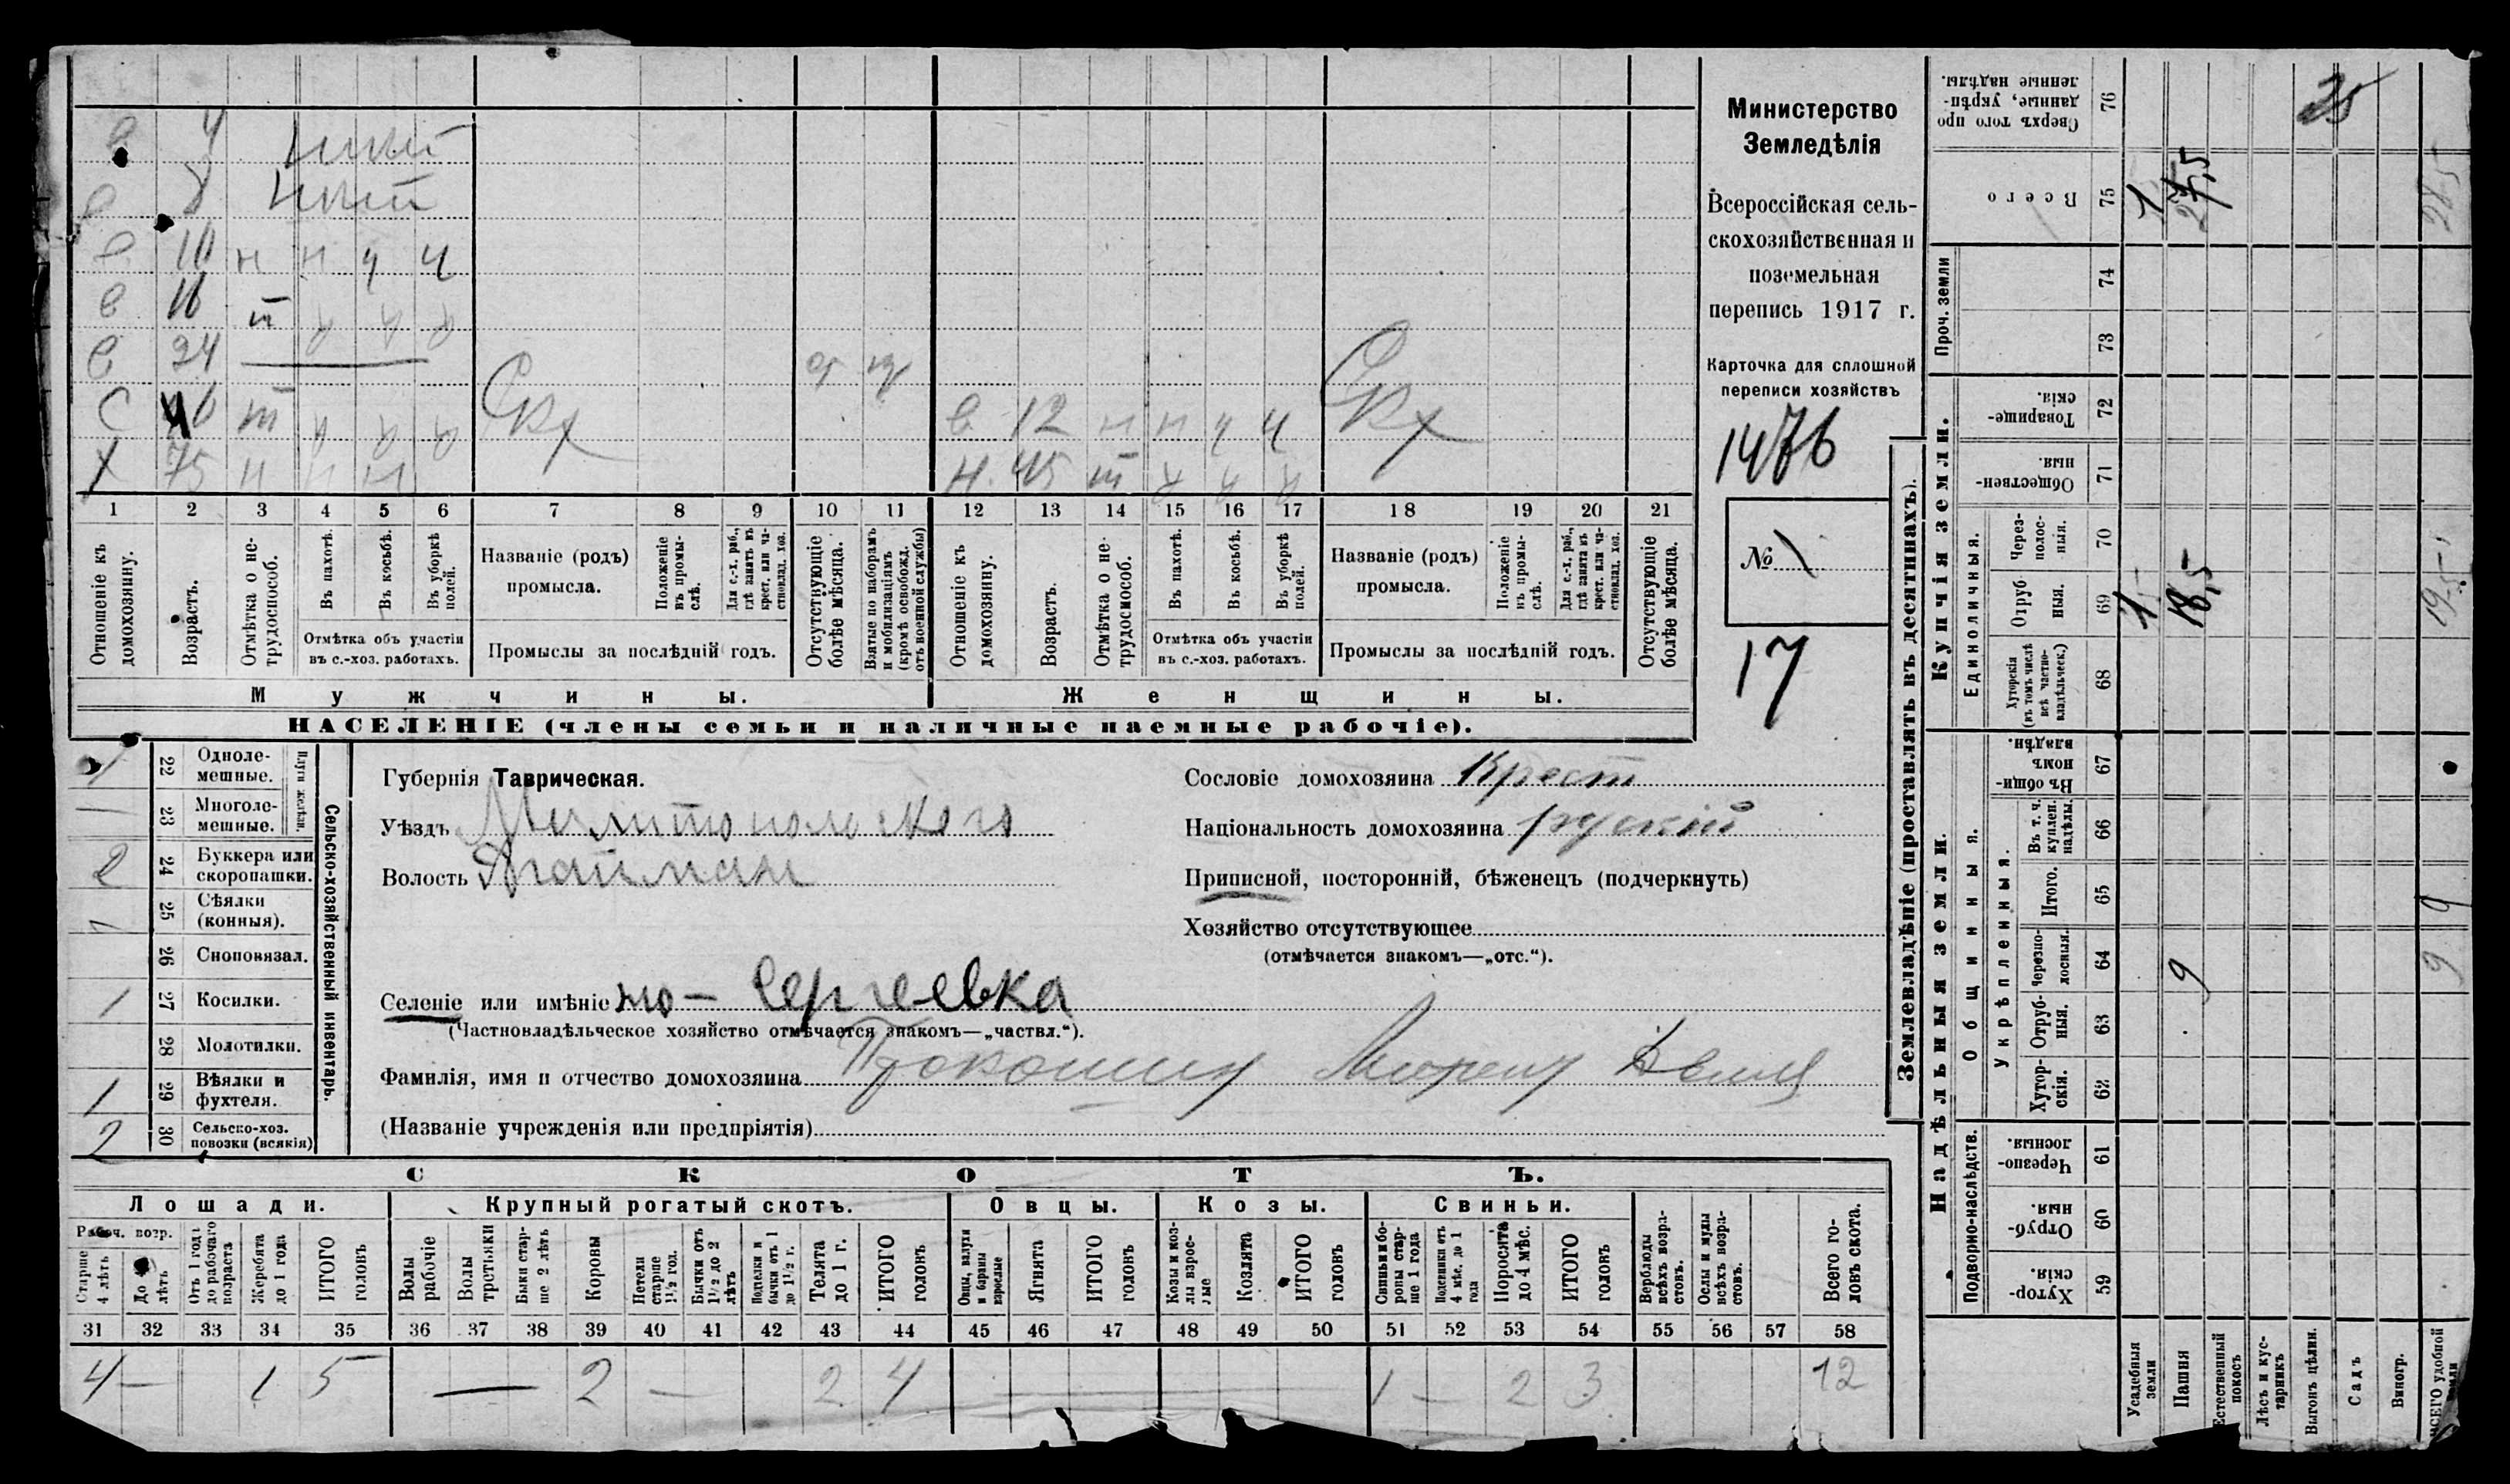 Министерство
Земледѣлія
Всероссійская сель-
скохозяйственная и
поземельная
перепись 1917 г.
Карточка для сплошной
переписи хозяйствъ
1476
№
17
в 4
в 8
в 10 н н ч ч
в 16 п
в 24
С 46 т
Х 75 н н н
в 12 н н ч ч
н. 45 т
1 2 3 4 5 6 7 8 9 10 11 12 13 14 15 16 17 18 19 20 21
Отношеніе къ домохозяину.
Возрастъ.
Отмѣтка о не-трудоспособ.
Въ пахотѣ.
Въ косьбѣ.
Въ уборкѣ полей.
Отмѣтка объ участіи въ с.-хоз. работахъ.
Названіе (родъ) промысла.
Положеніе въ промы-слѣ.
Для с.-х. раб., гдѣ занятъ въ крест. или ча-стновлад. хоз.
Промыслы за послѣдній годъ.
Отсутствующіе болѣе мѣсяца.
Взятые по наборамъ и мобилизаціямъ (кромѣ освобожд. отъ военной службы)
Отношеніе къ домохозяину.
Возрастъ.
Отмѣтка о не-трудоспособ.
Въ пахотѣ.
Въ косьбѣ.
Въ уборкѣ полей.
Отмѣтка объ участіи въ с.-хоз. работахъ.
Названіе (родъ) промысла.
Положеніе въ промы-слѣ.
Для с.-х. раб., гдѣ занята въ крест. или ча-стновлад. хоз.
Промыслы за послѣдній годъ.
Отсутствующіе болѣе мѣсяца.
Мужчины. Женщины.
НАСЕЛЕНІЕ (члены семьи и наличные наемные рабочіе).
Сельско-хозяйственный инвентарь.
Плуги желѣзн.
1 22 Одноле-мешные.
— 23 Многоле-мешные.
2 24 Буккера или скоропашки.
1 25 Сѣялки (конныя).
26 Сноповязал.
1 27 Косилки.
28 Молотилки.
1 29 Вѣялки и фухтеля.
2 30 Сельско-хоз. повозки (всякія)
Губернія Таврическая.
Уѣздъ Мелитопольского
Волость
Селеніе или имѣніе Но- Сергеевка
(Частновладѣльческое хозяйство отмѣчается знакомъ—„частвл.“).
Фамилія, имя и отчество домохозяина
(Названіе учрежденія или предпріятія)
Сословіе домохозяина Крест
Національность домохозяина руский
Приписной, посторонній, бѣженецъ (подчеркнуть)
Хозяйство отсутствующее
(отмѣчается знакомъ—„отс.“).
СКОТЪ.
Лошади. Крупный рогатый скотъ. Овцы. Козы. Свиньи.
Рабоч. возр.
Старше 4 лѣтъ
До 4 лѣтъ
Отъ 1 года до рабочаго возраста
Жеребята до 1 года
ИТОГО головъ
Волы рабочіе
Волы третьяки
Быки стар-ше 2 лѣтъ
Коровы
Нетели старше 1½ год.
Бычки отъ 1½ до 2 лѣтъ
Нетелки и бычки отъ 1 до 1½ г.
Телята до 1 г.
ИТОГО головъ
Овцы, валухи и бараны взрослые
Ягнята
ИТОГО головъ
Козы и коз-лы взрос-лые
Козлята
ИТОГО головъ
Свиньи и бо-ровы стар-ше 1 года
Подсвинки отъ 4 мѣс. до 1 года
Поросята до 4 мѣс.
ИТОГО головъ
Верблюды всѣхъ возра-стовъ.
Ослы и мулы всѣхъ возра-стовъ.
Всего го-ловъ скота.
31 32 33 34 35 36 37 38 39 40 41 42 43 44 45 46 47 48 49 50 51 52 53 54 55 56 57 58
4 — 1 5 — 2 — 2 4 1 — 2 3 12
Землевладѣніе (проставлять въ десятинахъ).
Купчія земли.
Надѣльныя земли.
Сверхъ того про данные, укрѣп-ленные надѣлы. 76 25
Всего 75 1 28,5
Проч. земли 74 73
Товарище-скія. 72
Обществен-ныя. 71
Единоличныя.
Через-полос-ныя. 70
Отруб-ныя. 69 1,5 18,5 19,5
Хуторскія (въ томъ числѣ всѣ частно-владѣльческ.) 68
Общинныя.
Въ общи-номъ владѣн. 67
Укрѣпленныя.
Въ т. ч. куплен. надѣлы. 66
Итого. 65 9
Черезпо-лосныя. 64 9 9
Отруб-ныя. 63
Хутор-скія. 62
Подворно-наслѣдств.
Черезпо-лосныя. 61
Отруб-ныя. 60
Хутор-скія. 59
Усадебныя земли
Пашня
Естественный покосъ
Лѣсъ и кус-тарникъ
Выгонъ цѣлин.
Садъ
Виногр.
ВСЕГО удобной земли